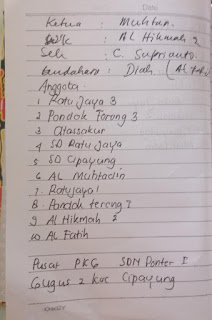 Date
Ketua : Muhtar.
Wk : AL Hikmah 2
Sek : C. Suprianto.
bendahara : Diah (AL
Anggota
1 Ratu Jaya 3
2 Pondok Terong 3
3 Atassakur
4 SD Ratu Jaya
5 SD Cipayung
6 AL Muhtadin
7 Ratujaya 1
8 Pondok terong 7
9 Al Hikmah 2
10 AL Fatih
Pusat PKG SDN Ponter I
Gugus 2 kec Cipayung